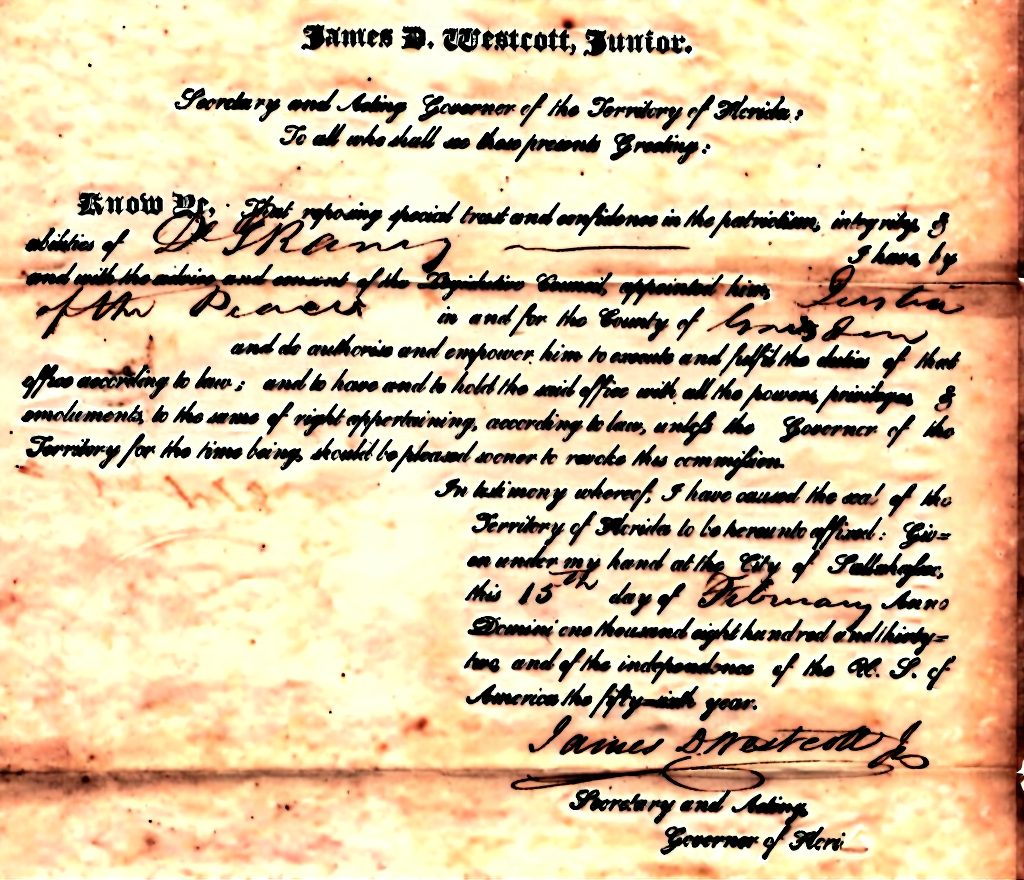 James D. Westcott, Junior.
Secretary and Acting Governor of the Territory of Florida;
To all who shall see these presents Greeting:
Know Ye, That reposing special trust and confidence in the patriotism, integrity, &
abilities of I have, by
and with the advice and consent of the Legislative Council, appointed him, Justice
of the Peace in and for the County of
and do authorise and empower him to execute and fulfil the duties of that
office according to law; and to have and to hold the said office with all the powers, privileges, &
emoluments, to the same of right appertaining, according to law, unless the Governor of the
Territory for the time being, should be pleased sooner to revoke this commission.
In testimony whereof, I have caused the seal of the
Territory of Florida to be hereunto affixed: Giv=
en under my hand at the City of Tallahassee,
this 15th day of February Anno
Domini one thousand eight hundred and thirty=
two, and of the independence of the U. S. of
America the fifty-sixth year.
James D. Westcott Jr
Secretary and Acting,
Governor of Flori